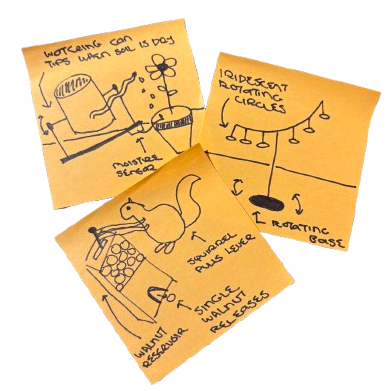 WATERING CAN
TIPS WHEN SOIL IS DRY
MOISTURE
SENSOR
IRIDESCENT
ROTATING
CIRCLES
ROTATING
BASE
SQUIRREL
PULLS LEVER
SINGLE
WALNUT
RELEASES
WALNUT
RESERVOIR